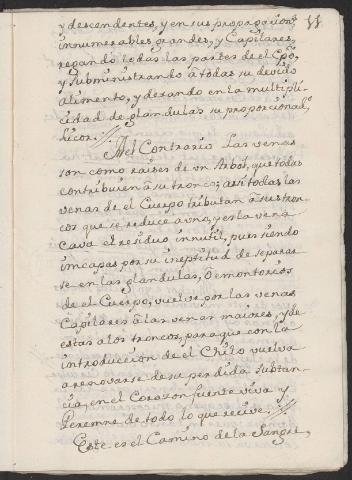 11
y descendentes, y en sus propagacions
innumerables grandes, y Capilares,
regando todas las partes de el Cpõ,
y Subministrando â todas su devido
alimento, y dexando en la multipli
cidad de glandulas su proporcionado
licor.//
Al Contrario Las venas
son como raises de vn Arbol, que todas
contribuien â su tronco; asi todas las
venas de el Cuerpo tributan â sus tron
cos que se reduce a vno, y es la vena
Cava el residuo innutil, pues siendo
imcapas por su ineptitud de separar
se en las glandulas, ô emontorios
de el Cuerpo, vuelve por las venas
Capilares â las venas maiores, y de
estas a los troncos, para que con la
introduccion de el Chilo vuelva
a renovarse de su perdida subtan
cia, en el Corazon fuente viva y
Peremne de todo lo que recive.//
Este es el Camino de la Sangre,